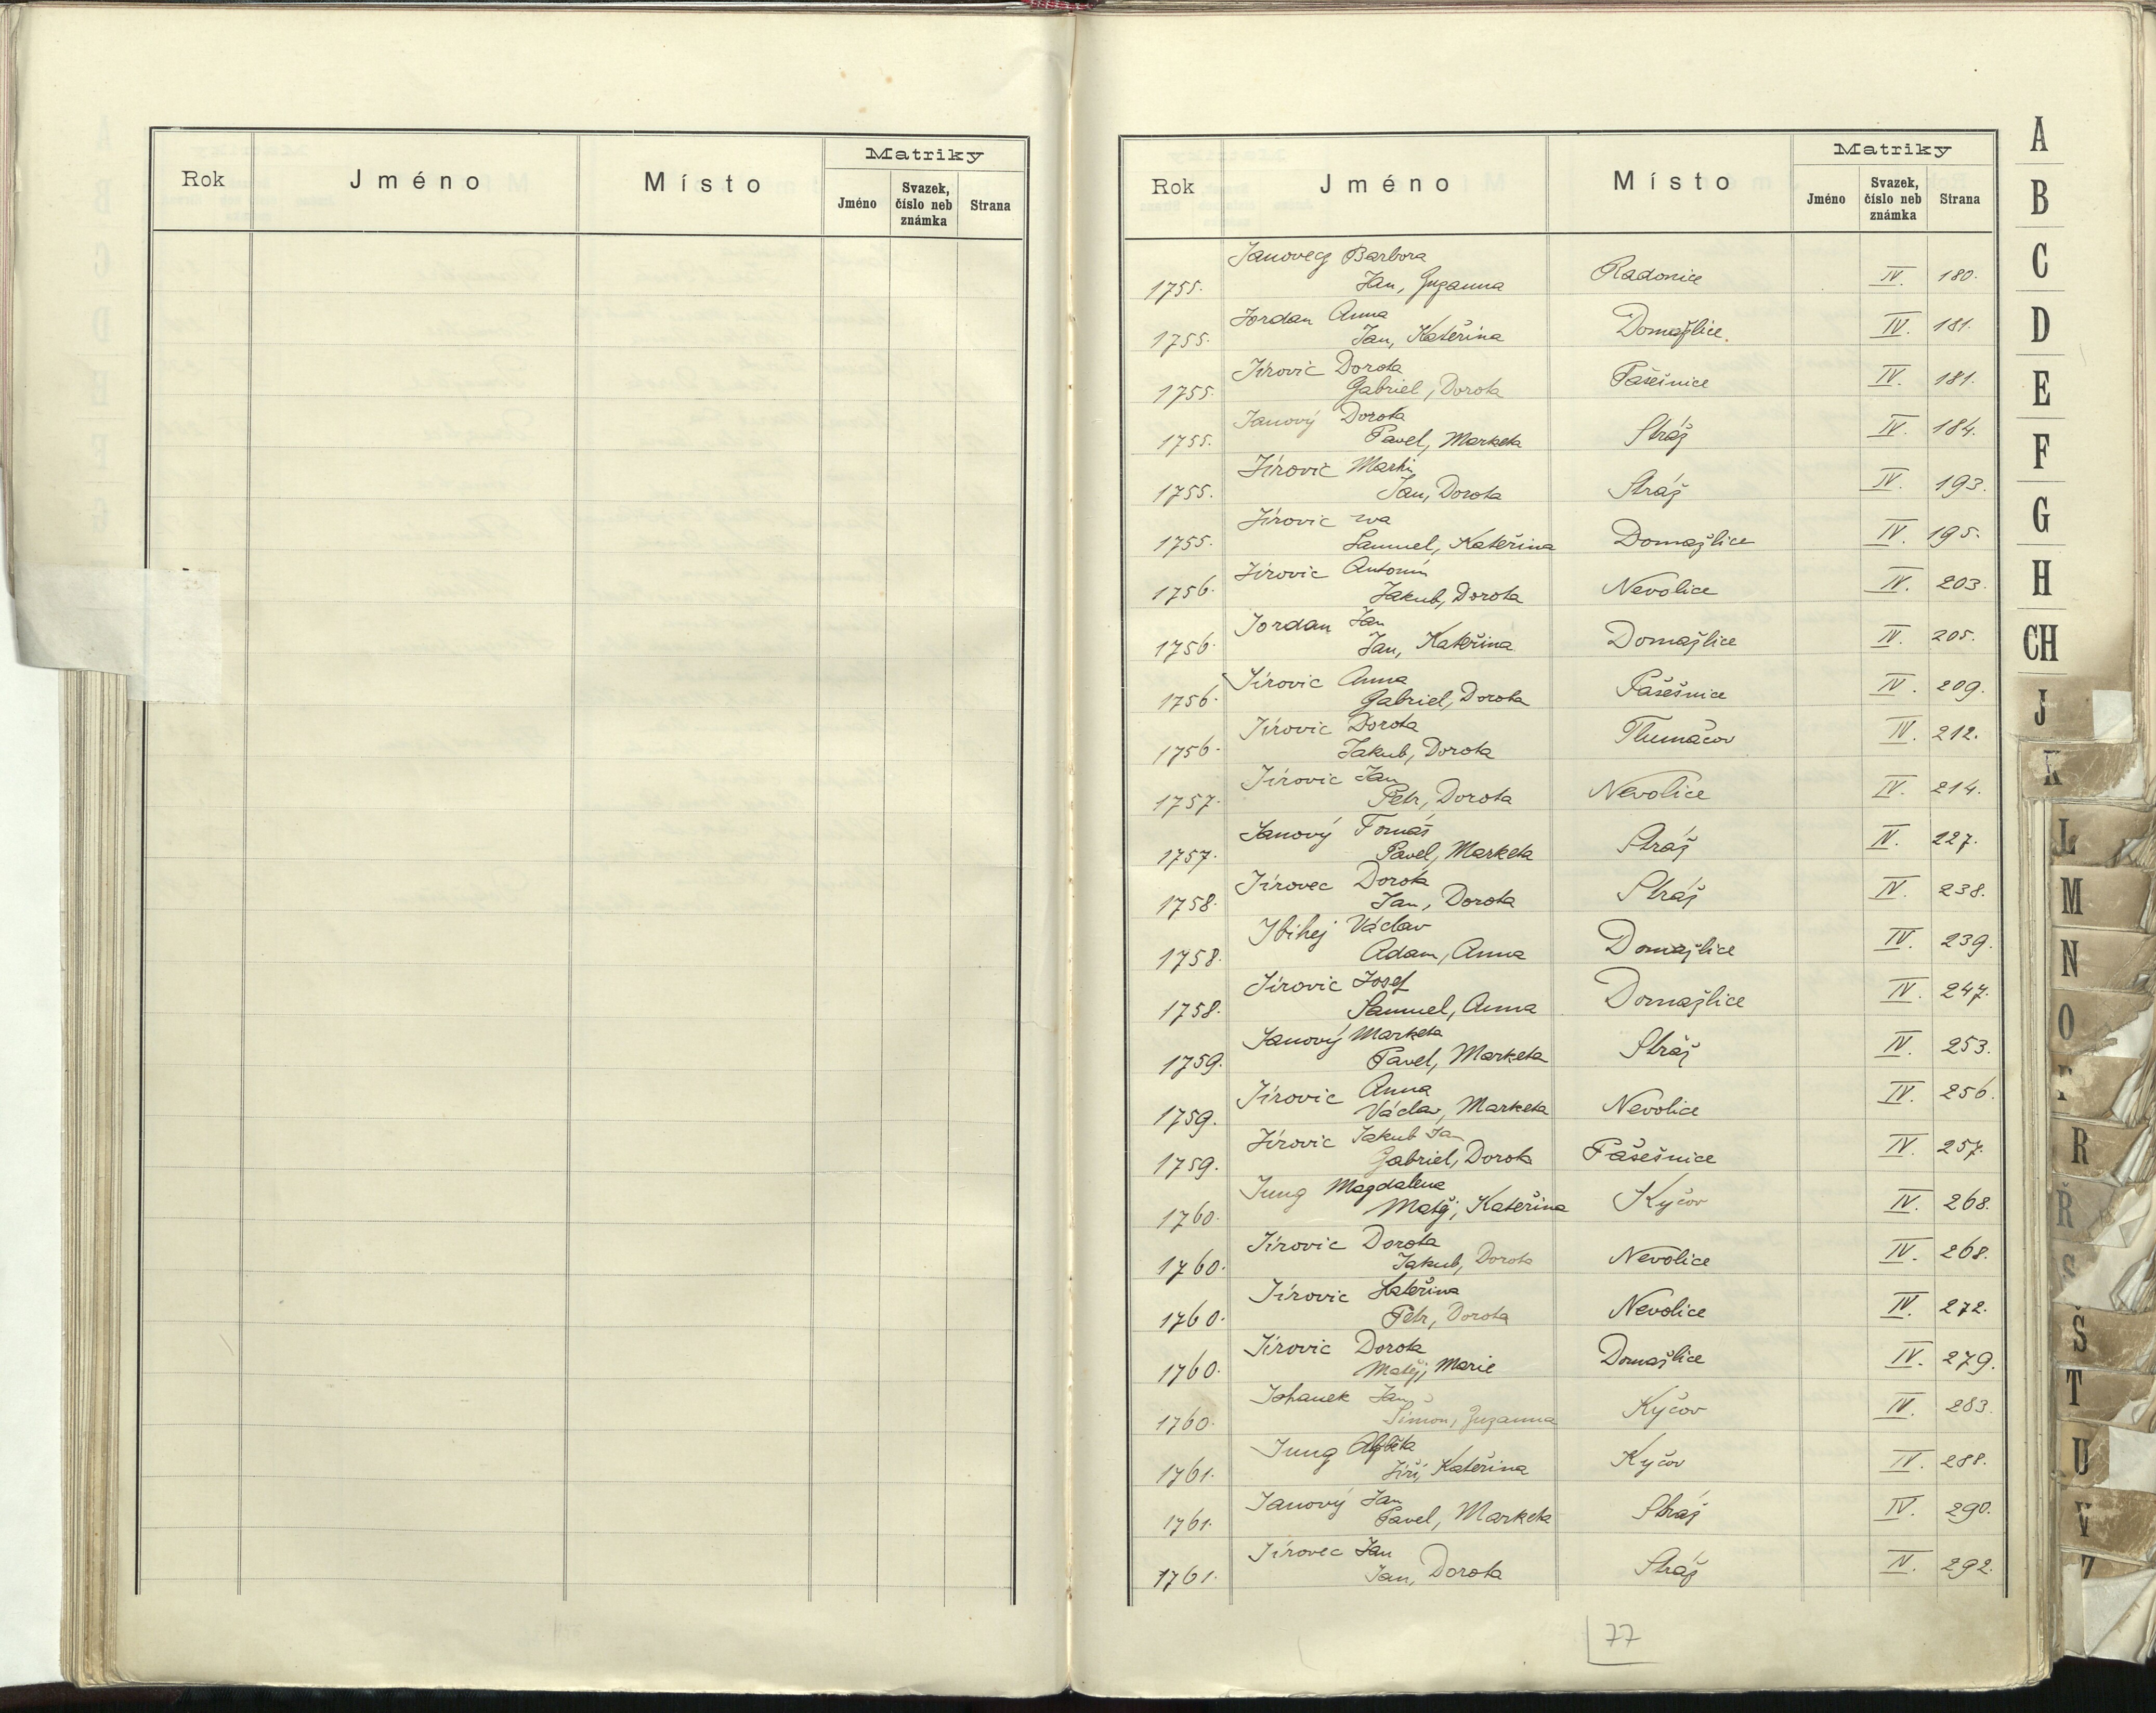 Rok Jméno Místo Matriky
Jméno Svazek, číslo neb známka Strana
Rok Jméno Místo Matriky
Jméno Svazek, číslo neb známka Strana
Janovec Barbora
1755. Jan, Zuzanna Radonice IV. 180.
Jordan Anna
1755. Jan, Kateřina Domažlice. IV. 181.
Jírovic Dorota
1755. Gabriel, Dorota Pašešnice IV. 181.
Janový Dorota
1755. Pavel, Marketa Stráž IV. 184.
Jírovic Martin
1755. Jan, Dorota Stráž IV. 193.
Jírovic Eva
1755. Samuel, Kateřina Domažlice IV. 195.
Jírovic Antonín
1756. Jakub, Dorota Nevolice IV. 203.
Jordan Jan
1756. Jan, Kateřina Domažlice IV. 205.
Jírovic Anna
1756. Gabriel, Dorota Pašešnice IV. 209.
Jírovic Dorota
1756. Jakub, Dorota Tlumačov IV. 212.
Jírovic Jan
1757. Petr, Dorota Nevolice IV. 214.
Janový Tomáš
1757. Pavel, Marketa Stráž IV. 227.
Jírovec Dorota
1758. Jan, Dorota Stráž IV. 238.
Václav
1758. Adam, Anna Domažlice IV. 239.
Jírovic Josef
1758. Samuel, Anna Domažlice IV. 247.
Janový Marketa
1759. Pavel, Marketa Stráž IV. 253.
Jírovic Anna
1759. Václav, Marketa Nevolice IV. 256.
Jírovic Jakub Jan
1759. Gabriel, Dorota Pašešnice IV. 257.
Jung Magdalena
1760. Matěj, Kateřina Kyčov IV. 268.
Jírovic Dorota
1760. Jakub, Dorota Nevolice IV. 268.
Jírovic Kateřina
1760. Petr, Dorota Nevolice IV. 272.
Jírovic Dorota
1760. Matěj, Marie Domažlice IV. 279.
Johanek Jan
1760. Šimon, Zuzanna Kyčov IV. 283.
Jung Alžběta
1761. Jiří, Kateřina Kyčov IV. 288.
Janový Jan
1761. Pavel, Marketa Stráž IV. 290.
Jírovec Jan
1761. Jan, Dorota Stráž IV. 292.
77
A
B
C
D
E
F
G
H
CH
J
K
L
M
N
O
P
R
Ř
S
Š
T
U
V
Z